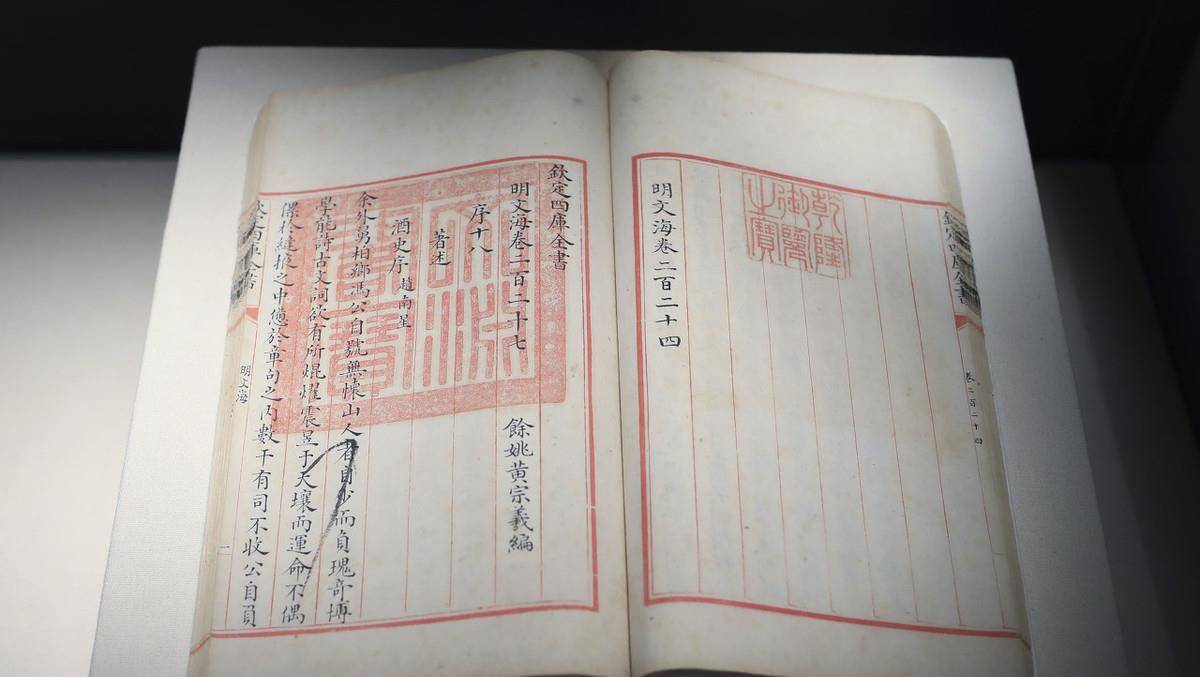 欽定四庫全書
卷二百二十四
乾隆御覽之寶
明文海卷二百二十四
欽定四庫全書
明文海卷二百二十七
餘姚黃宗羲編
序十八
著述
酒史序 趙南星
余外舅柏鄉馮公自號無懷山人者自少而負瑰奇博
學能詩古文詞欲有所焜燿震昱于天壤而運命不偶
於縫掖之中憊於章句之内數干有司不收公自員
欽定四庫全書
明文海
一